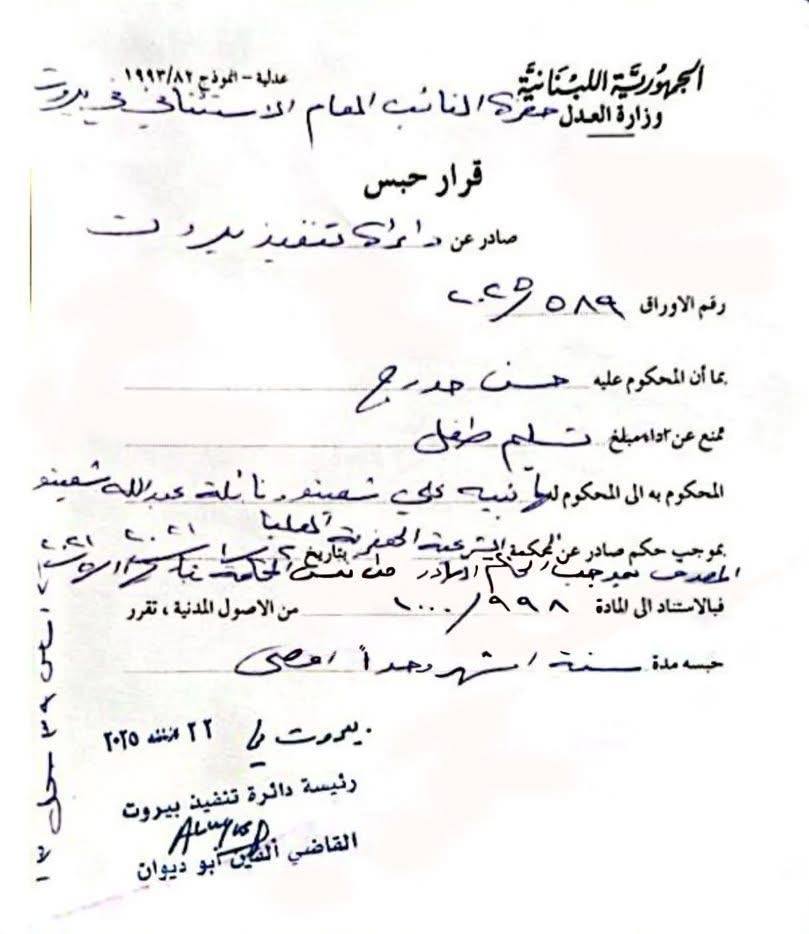 الجمهورية اللبنانية
وزارة العدل
عدلية - نموذج ١٩٩٣/٨٢
حضرة النائب العام الاستئنافي في بيروت
قرار حبس
صادر عن دائرة تنفيذ بيروت
رقم الاوراق ٥٨٩/٢٠٢٥
بما أن المحكوم عليه حسن
ممتنع عن تسليم طفل
المحكوم به الى المحكوم لها نبيه علي شعيتو ونائلة عبدالله شعيتو
بموجب حكم صادر عن المحكمة الشرعية الجعفرية العليا بتاريخ ٢٠٢١
المصدق بموجب الحكم الصادر عن نفس المحكمة ٢٠٢١
فبالاستناد الى المادة ٩٩٨/١٠٠٠ من الاصول المدنية ، تقرر
حبسه مدة ستة اشهر حداً اقصى
بيروت في ٢٢ ٢٠٢٥
رئيسة دائرة تنفيذ بيروت
القاضي ألفين أبو ديوان
اساس ٣٩ سجل